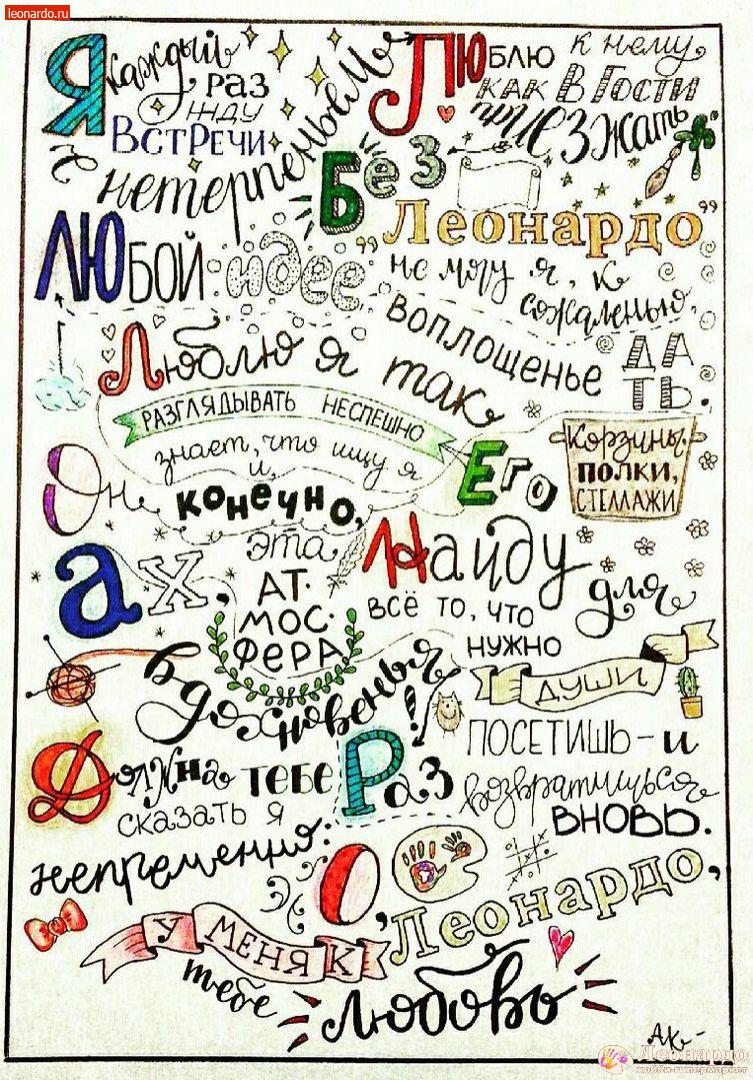 leonardo.ru
Я каждый раз жду встречи
с нетерпеньем
Люблю к нему
как в гости
приезжать
Без
"Леонардо"
не могу я, к
сожаленью,
Любой идее
воплощенье
дать.
Люблю я так
разглядывать неспешно
Его
корзины,
полки,
стеллажи
Он знает, что ищу я
и, конечно,
Найду
всё то, что
нужно
для
души
Ах, эта
ат-
мос-
фера
вдохновенья!
Должна тебе
сказать я
непременно:
Раз
посетишь – и
возвратишься
вновь.
О, Леонардо,
у меня к
тебе
любовь
АК-
Леонардо
хобби-гипермаркет